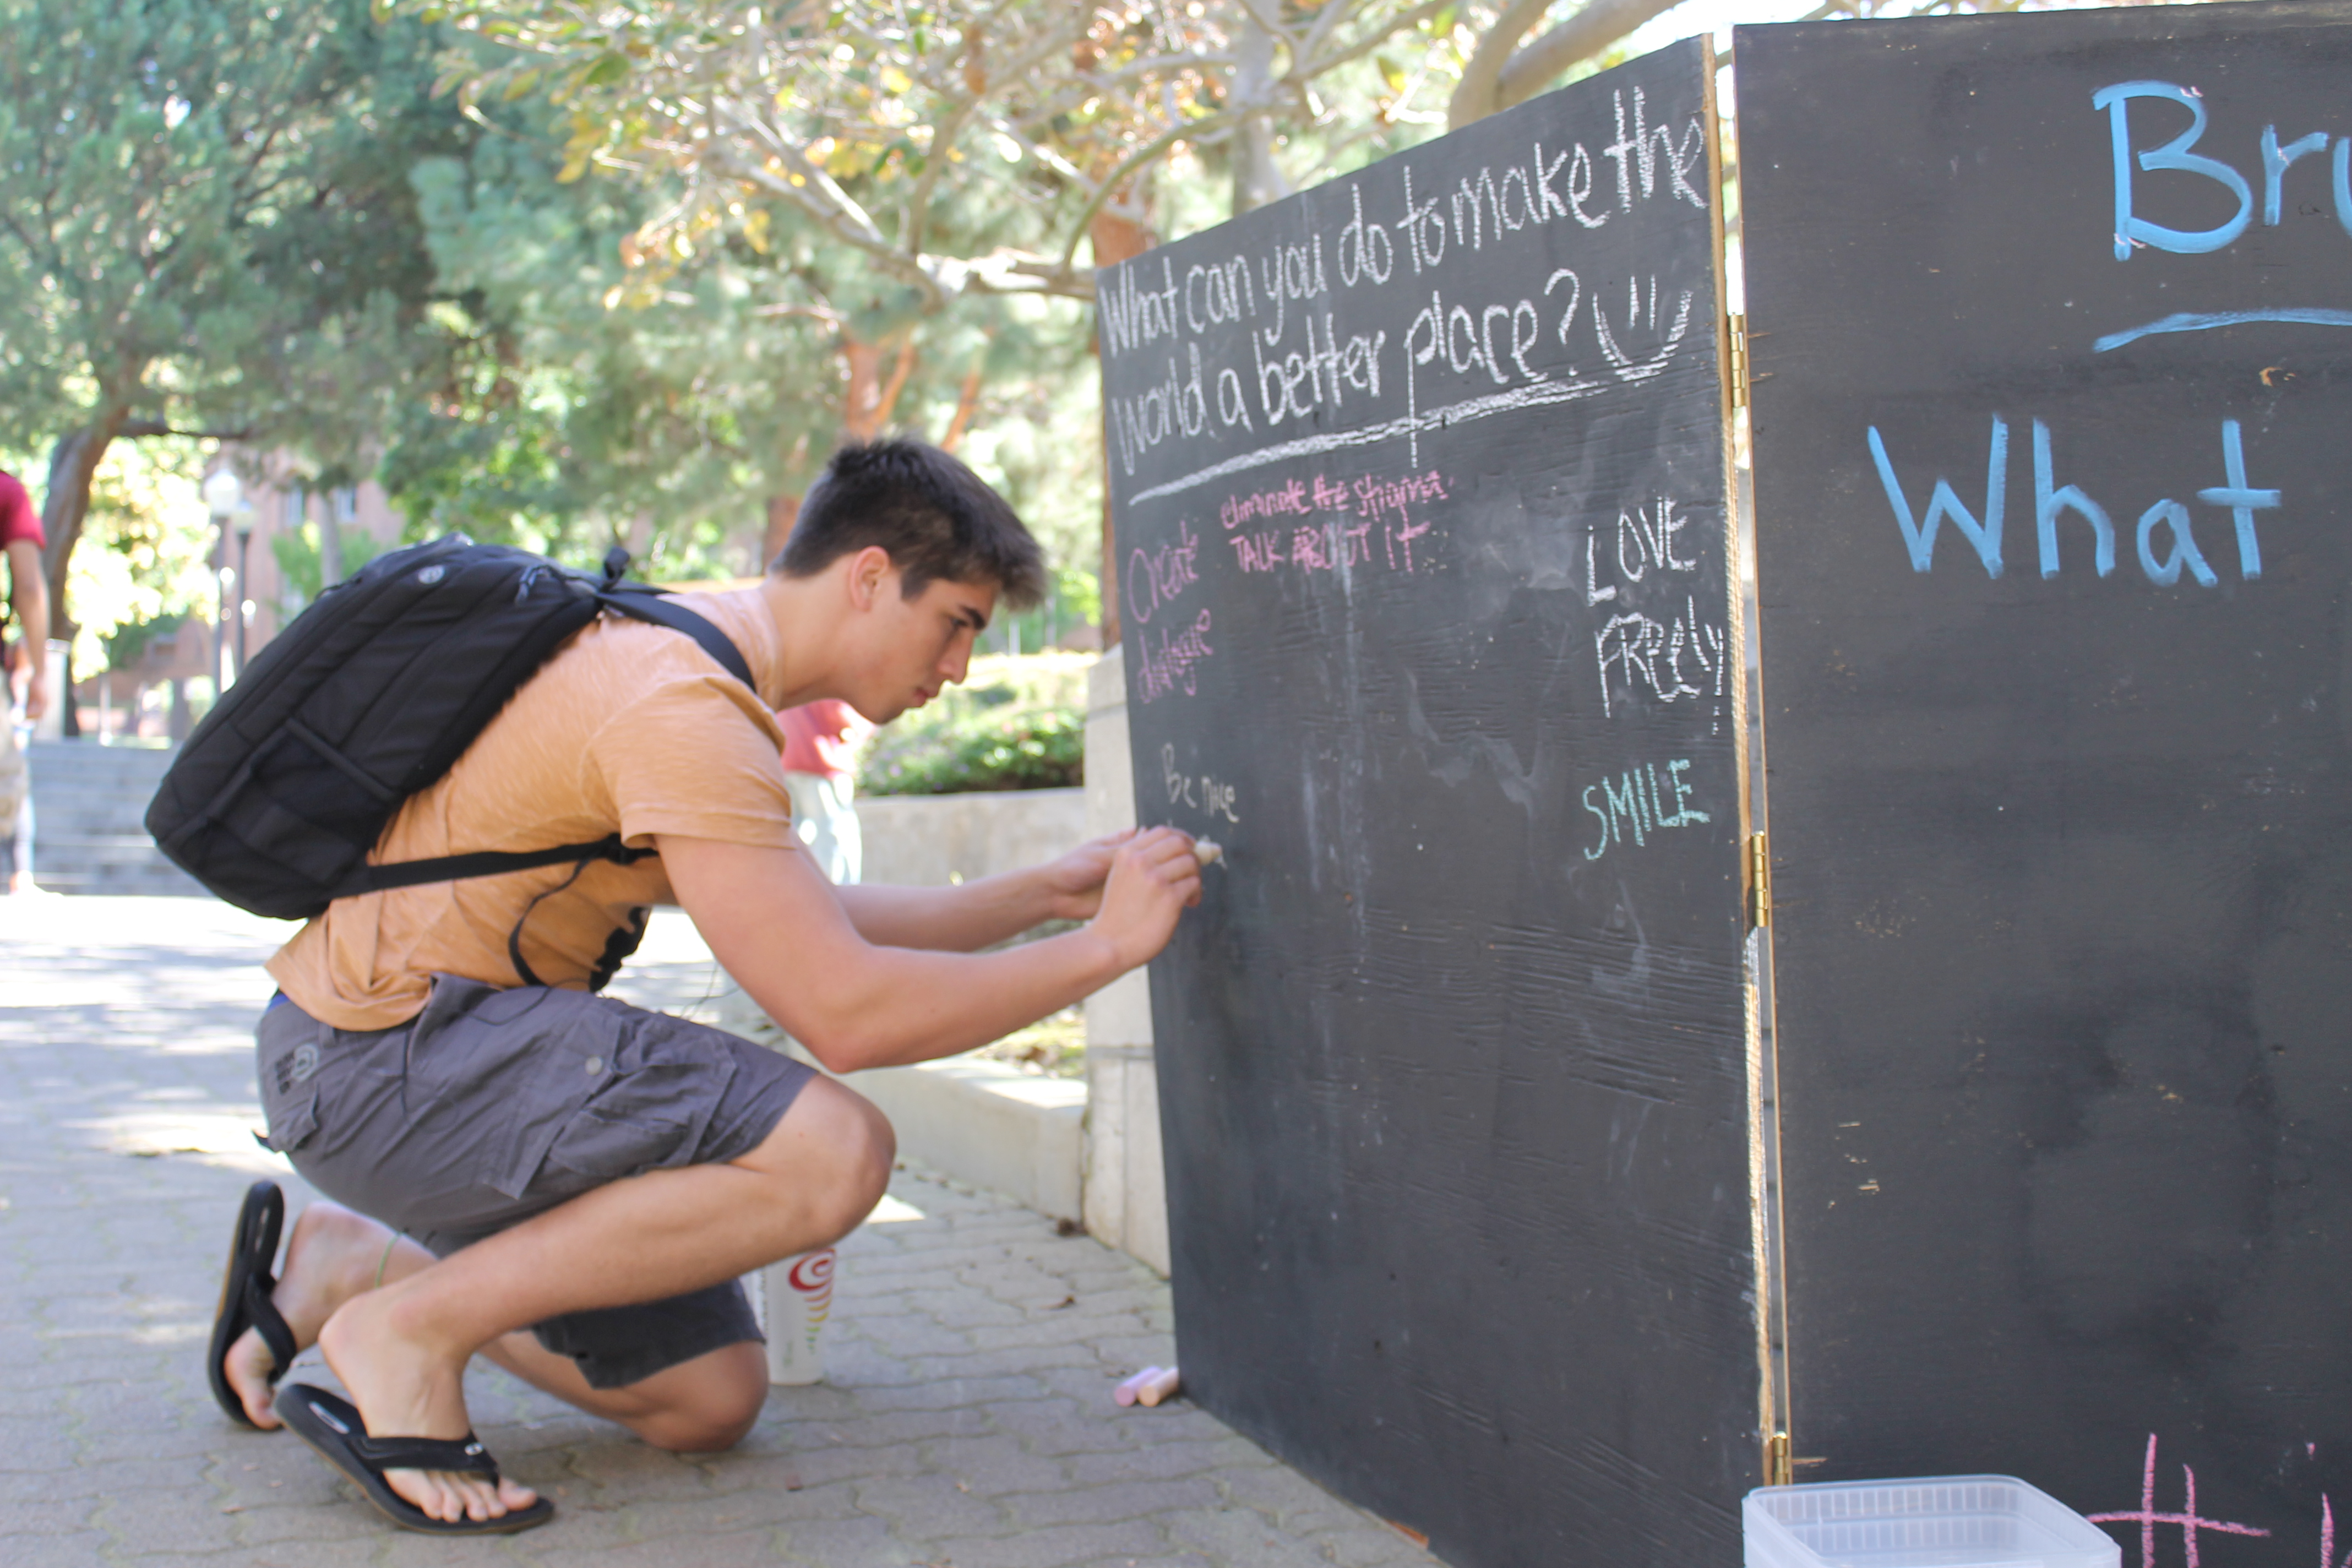 What can you do to make the
world a better place?
eliminate the stigma.
TALK ABOUT IT
Create
dialogue
LOVE
FReely!
Be nice
SMILE
Bru
What
#